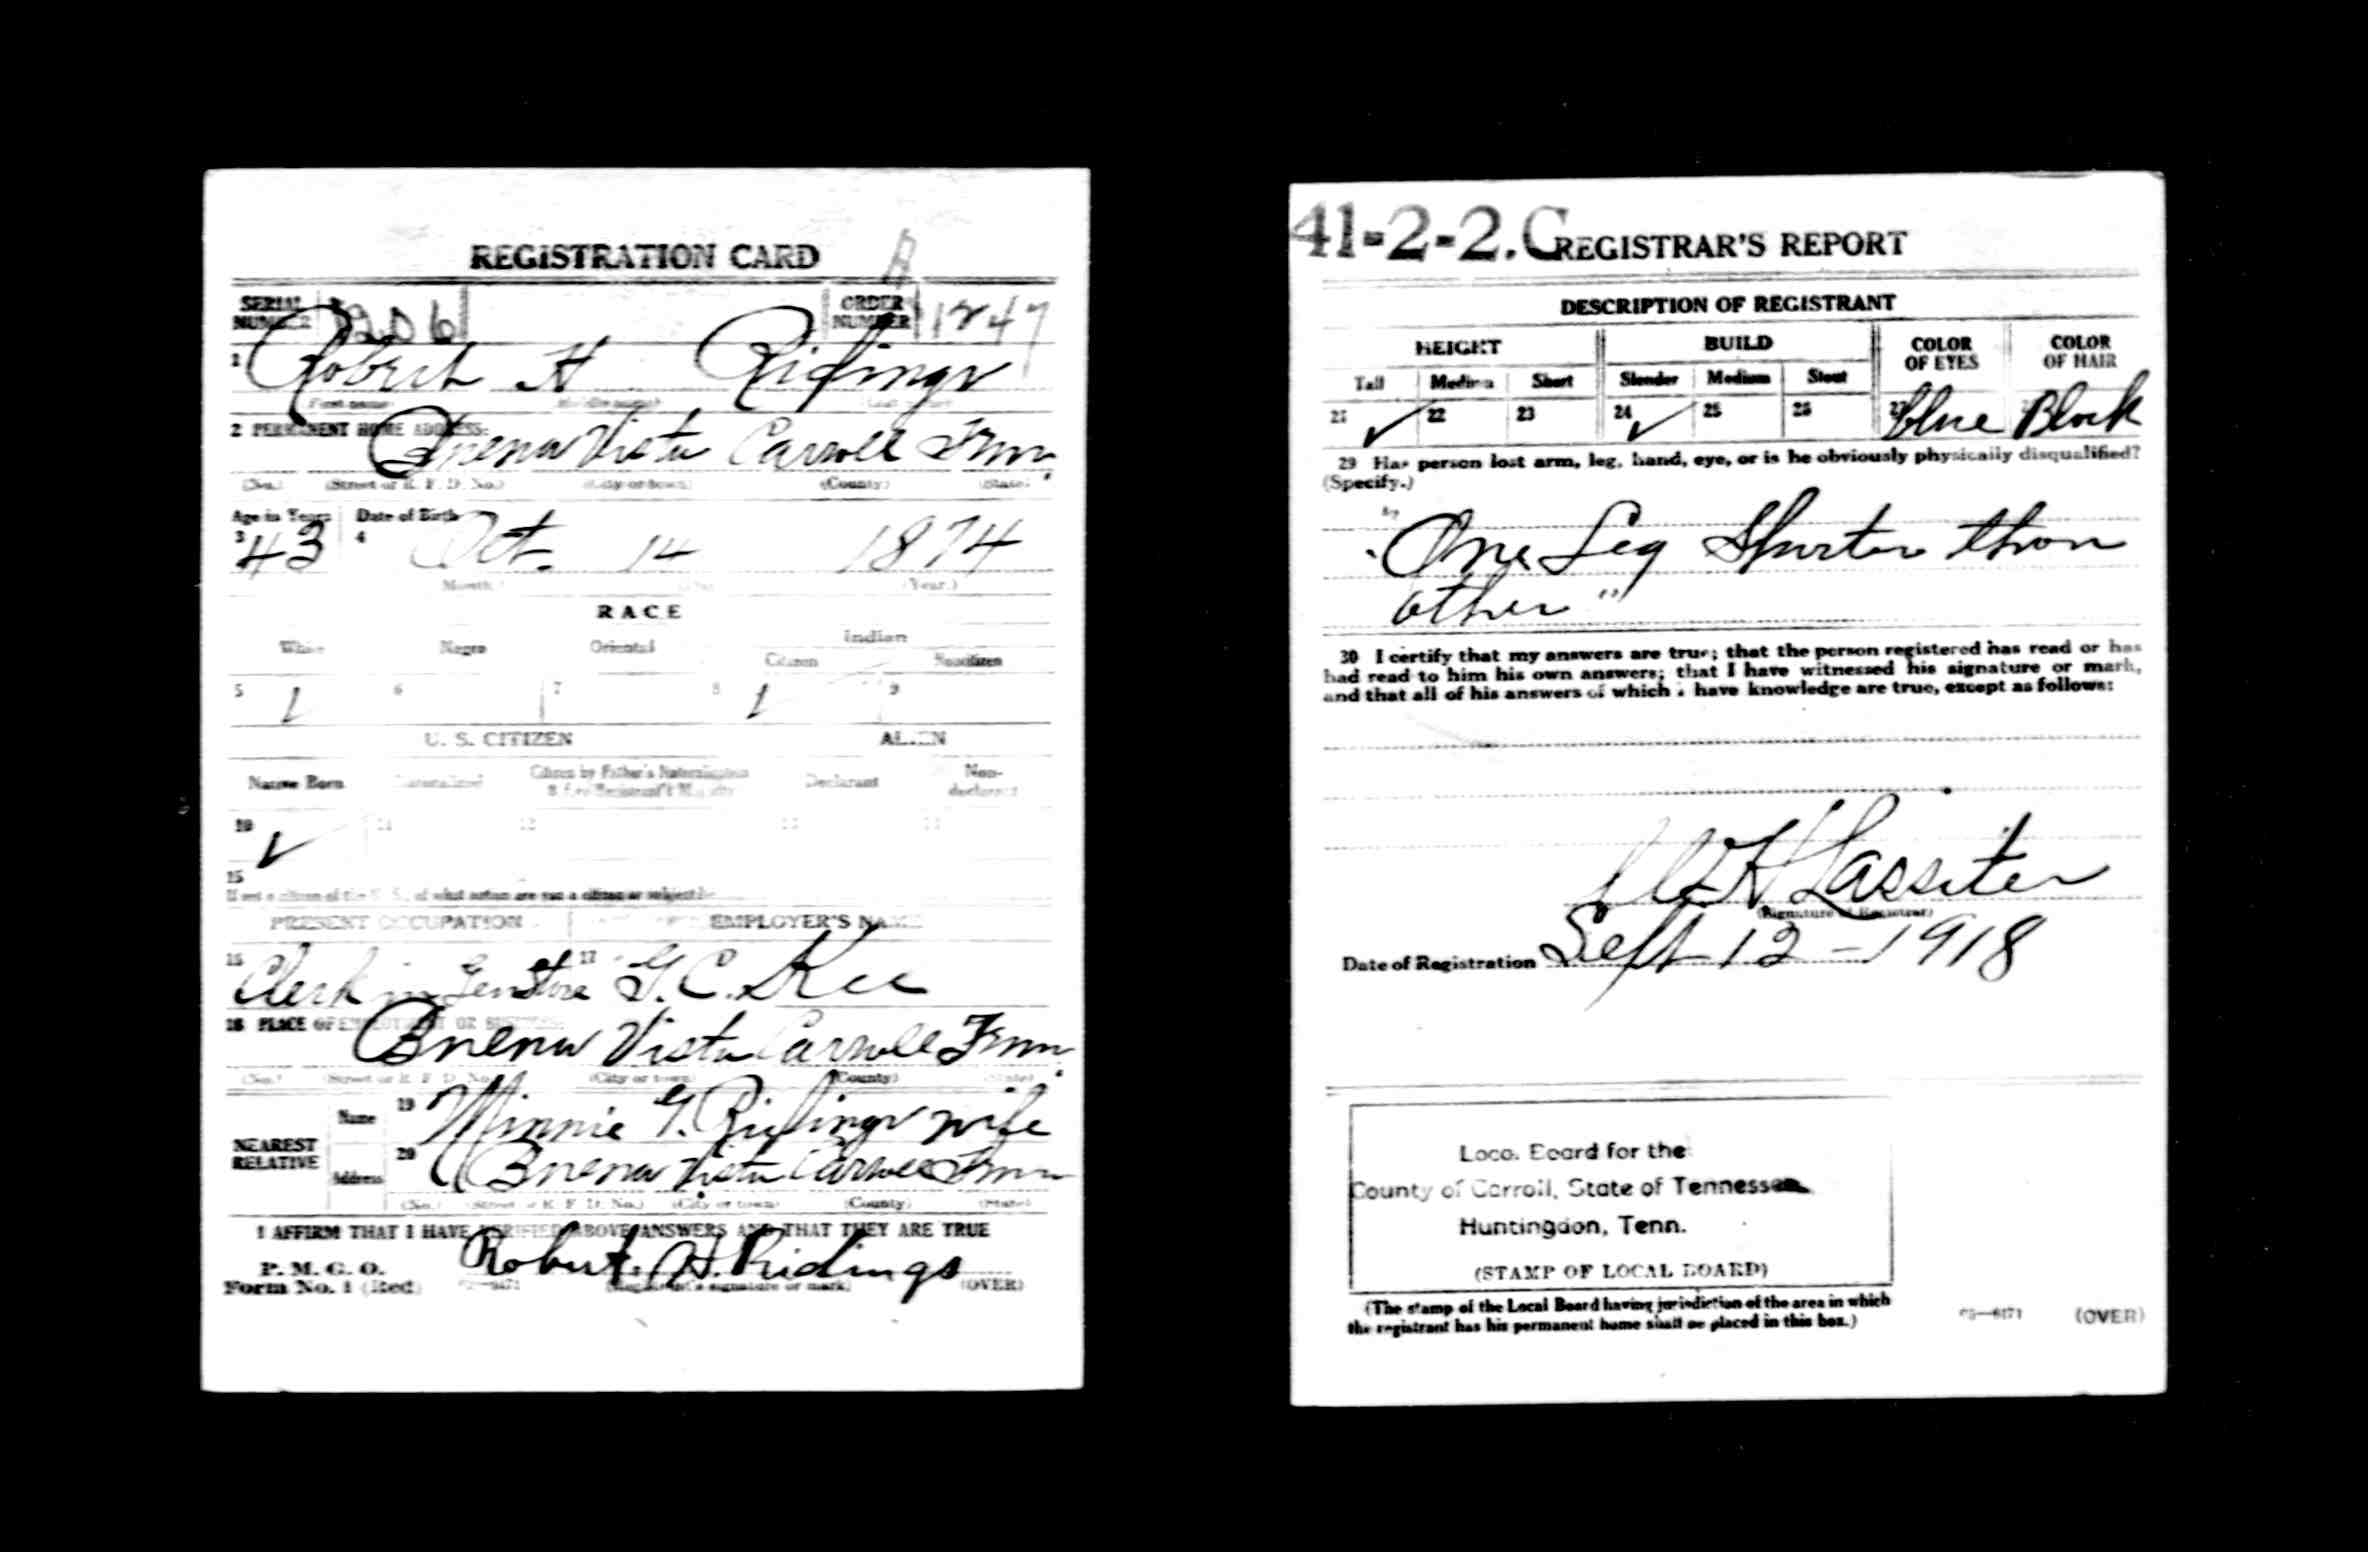 REGISTRATION CARD
SERIAL NUMBER 1206 ORDER NUMBER A 1247
1 Robert H Ridings
(First name) (Middle name) (Last name)
2 PERMANENT HOME ADDRESS:
Buena Vista Carroll Tenn.
(No.) (Street or R. F. D. No.) (City or town) (County) (State)
Age in Years Date of Birth
3 43 4 Oct. 14 1874
(Month.) (Day.) (Year.)
RACE
White Negro Oriental Indian
Citizen Noncitizen
5 6 7 8 9
U. S. CITIZEN ALIEN
Native Born Naturalized Citizen by Father's Naturalization Before Registrant's Majority Declarant Non-declarant
10 ✓ 11 12 13 14
15
If not a citizen of the U. S., of what nation are you a citizen or subject?
PRESENT OCCUPATION EMPLOYER'S NAME
16 Clerk in Gen Store 17 G. C. Kee
18 PLACE OF EMPLOYMENT OR BUSINESS:
Buena Vista Carroll Tenn.
(No.) (Street or R. F. D. No.) (City or town) (County) (State)
NEAREST RELATIVE
Name 19 Minnie G. Ridings wife
Address 20 Buena Vista Carroll Tenn
(No.) (Street or R. F. D. No.) (City or town) (County) (State)
I AFFIRM THAT I HAVE VERIFIED ABOVE ANSWERS AND THAT THEY ARE TRUE
P. M. G. O.
Form No. 1 (Red) 03—6171 Robert. H. Ridings
(Registrant's signature or mark) (OVER)
41-2-2.C REGISTRAR'S REPORT
DESCRIPTION OF REGISTRANT
HEIGHT BUILD COLOR OF EYES COLOR OF HAIR
Tall Medium Short Slender Medium Stout
21 ✓ 22 23 24 ✓ 25 26 27 blue Black
29 Has person lost arm, leg, hand, eye, or is he obviously physically disqualified?
(Specify.)
"One Leg Shorter than
other"
30 I certify that my answers are true; that the person registered has read or has
had read to him his own answers; that I have witnessed his signature or mark,
and that all of his answers of which I have knowledge are true, except as follows:
Lassiter
(Signature of Registrar)
Date of Registration Sept 12 - 1918
Local Board for the
County of Carroll, State of Tennessee
Huntingdon, Tenn.
(STAMP OF LOCAL BOARD)
(The stamp of the Local Board having jurisdiction of the area in which
the registrant has his permanent home shall be placed in this box.)
03—6171 (OVER)